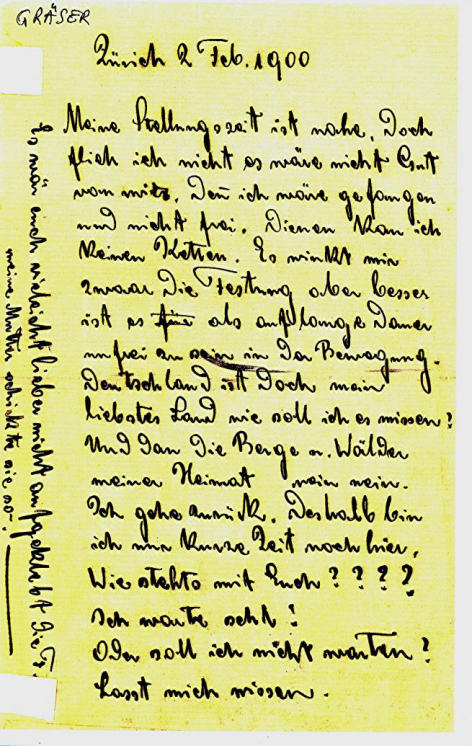 GRÄSER
Zürich 2 Feb. 1900
Meine Stellungszeit ist nahe. Doch
flieh ich nicht es wäre nicht Gut
von mir. Den̄ ich wäre gefangen
und nicht frei. Dienen kan ich
keinen Ketten. Es winkt mir
zwaar Die Festung aber besser
ist es für als auf lange Dauer
unfrei zu sein in der Bewegung.
Deutschland ist Doch mein
liebstes Land wie soll ich es missen?
Und Dan Die Berge u. Wälder
meiner Heimat nein nein.
Ich gehe zurück. Deshalb bin
ich nur kurze Zeit noch hier.
Wie stehts mit Euch ? ? ? ?
Ich warte seht!
Oder soll ich nicht warten?
Lasst mich wissen.
Es wär euch vieleicht lieber nicht aufgeklebt Die
meine Mutter schickte sie so!